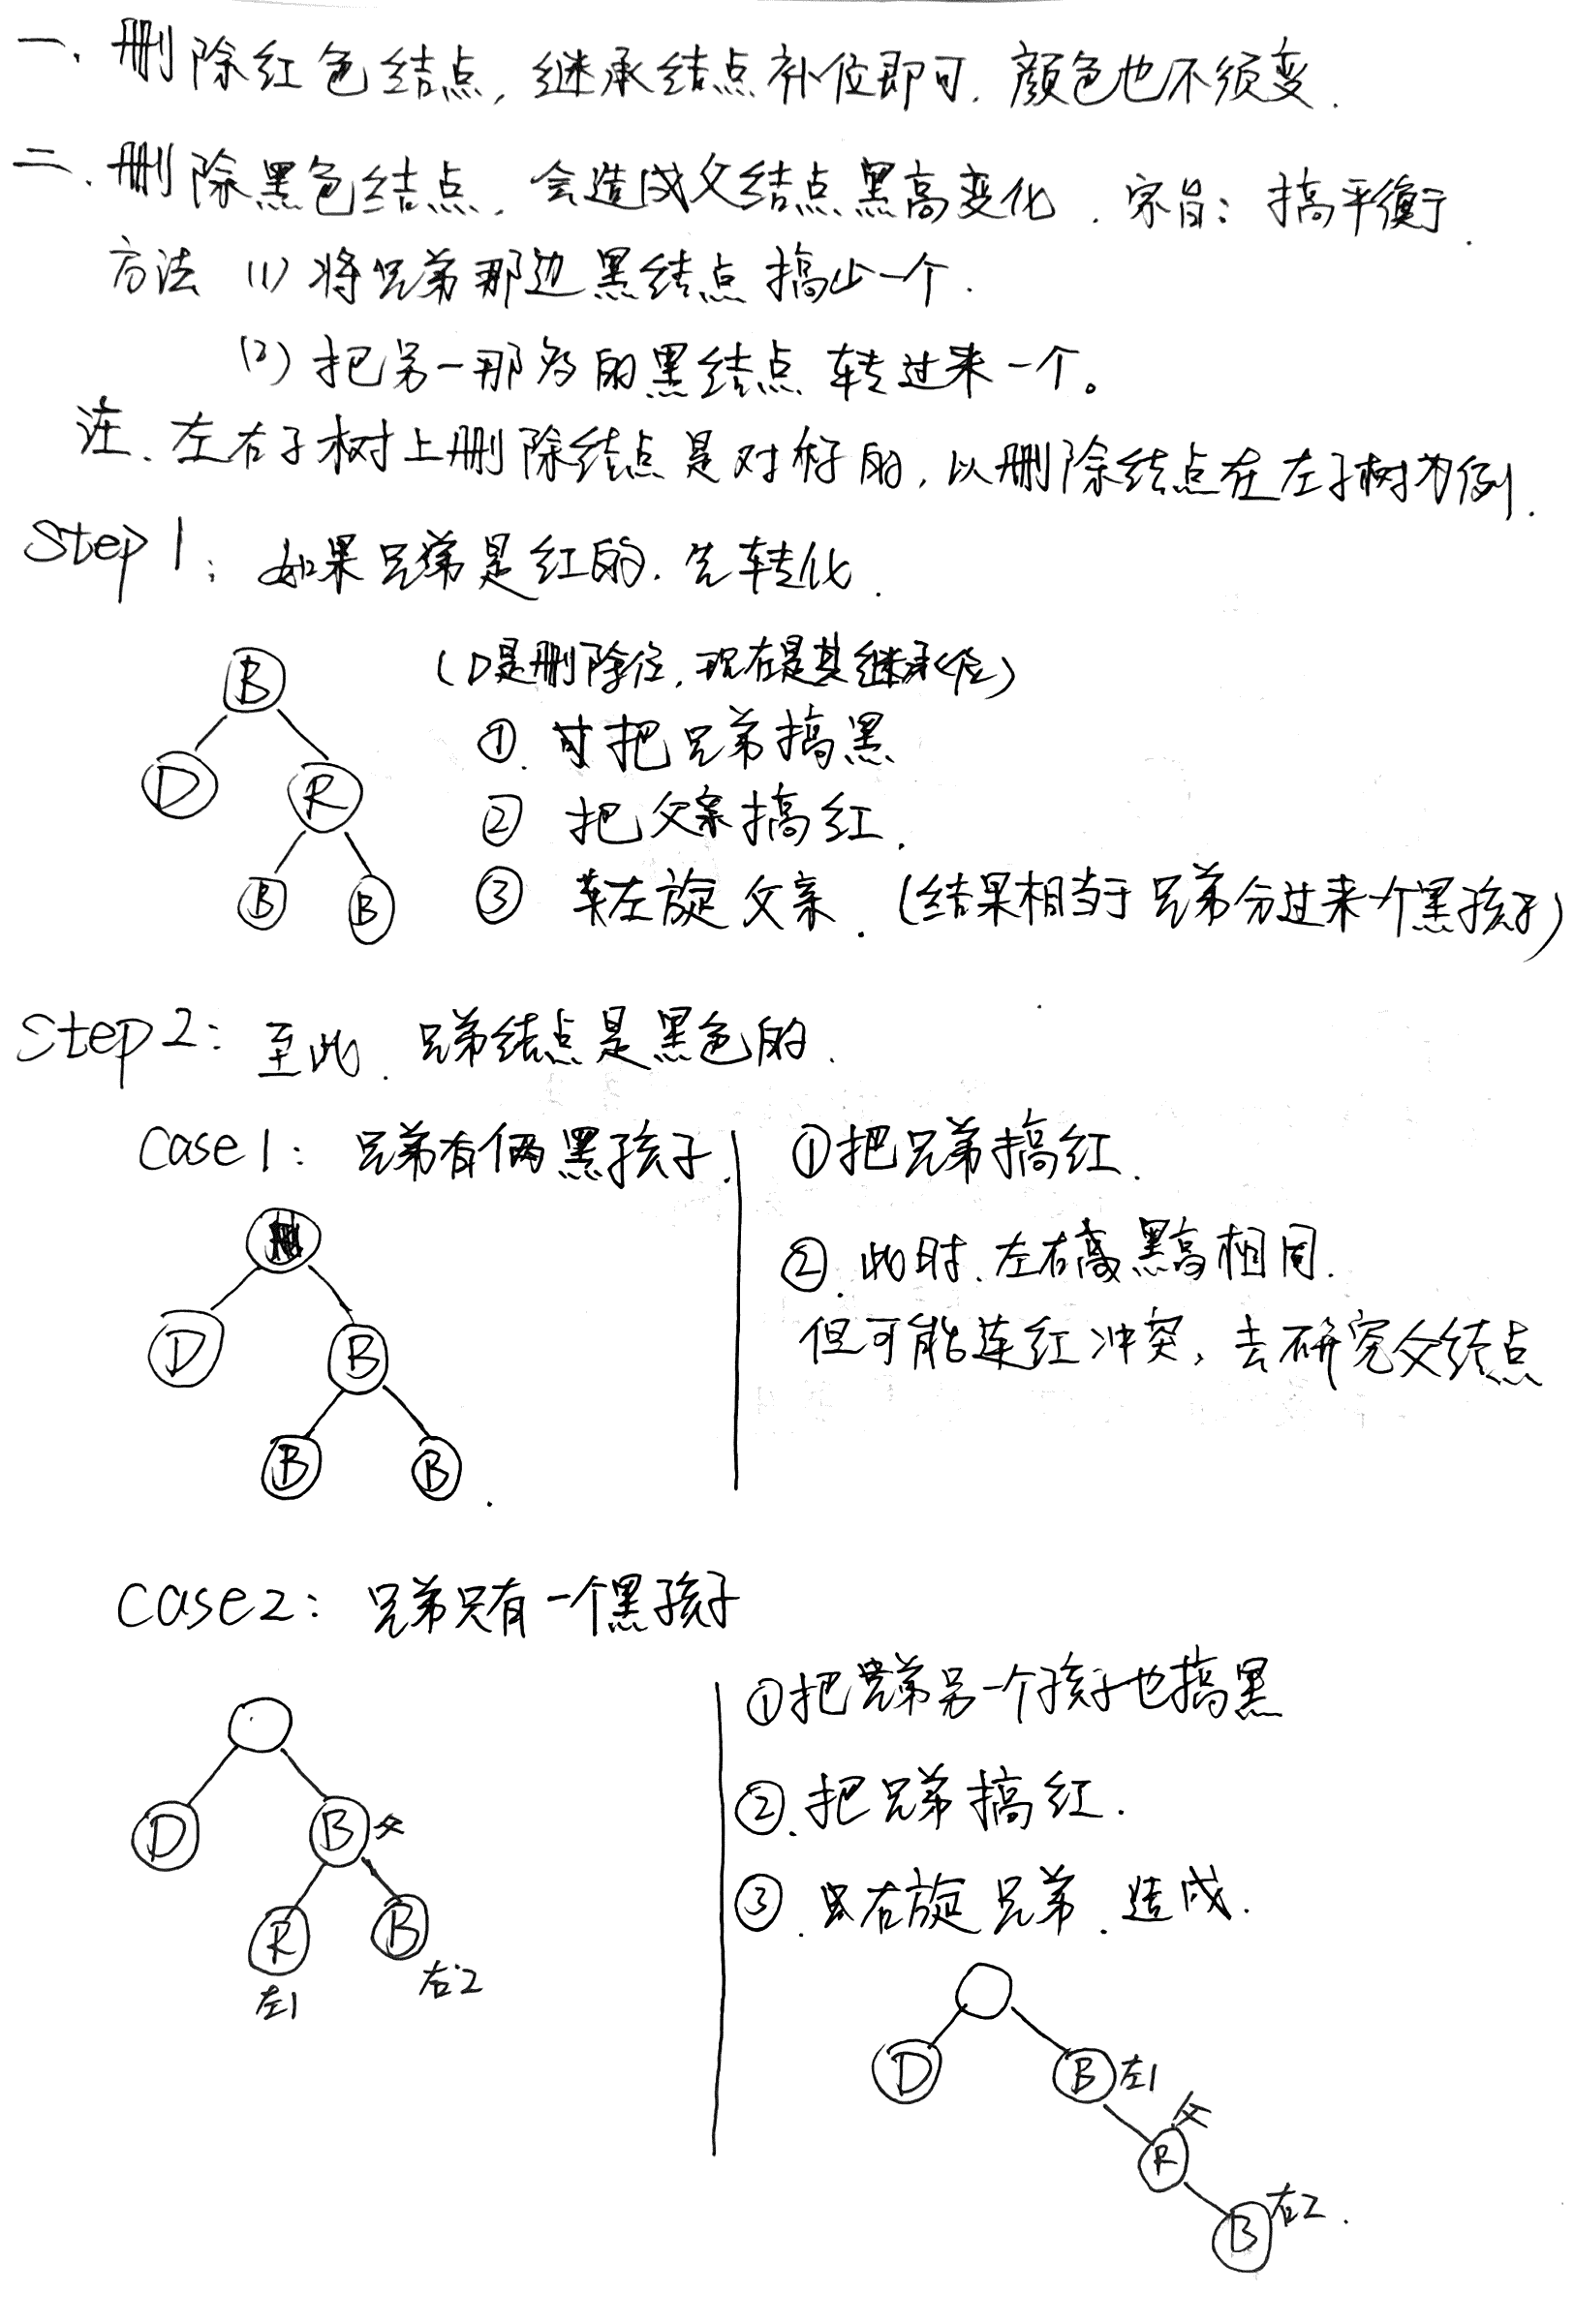 一、删除红色结点，继承结点补位即可．颜色也不须变．
二、删除黑色结点，会造成父结点黑高变化．宗旨：搞平衡．
方法 (1) 将兄弟那边黑结点搞少一个．
(2) 把另一那边的黑结点转过来一个。
注、左右子树上删除结点是对称的，以删除结点在左子树为例．
Step 1：如果兄弟是红的．先转化．
(D是删除位，现在是其继承位)
B
D
R
B
B
① 把兄弟搞黑
② 把父亲搞红．
③ 左旋父亲．(结果相当于兄弟分过来一个黑孩子)
Step 2：至此．兄弟结点是黑色的．
Case 1：兄弟有俩黑孩子．
D
B
B
B
①把兄弟搞红．
②．此时、左右黑高相同．
但可能连红冲突，去研究父结点
Case 2：兄弟只有一个黑孩子
D
B 父
R
B
左1
右2
①把兄弟另一个孩子也搞黑
②．把兄弟搞红．
③．右旋兄弟．造成．
D
B 左1
父
R
B 右2．